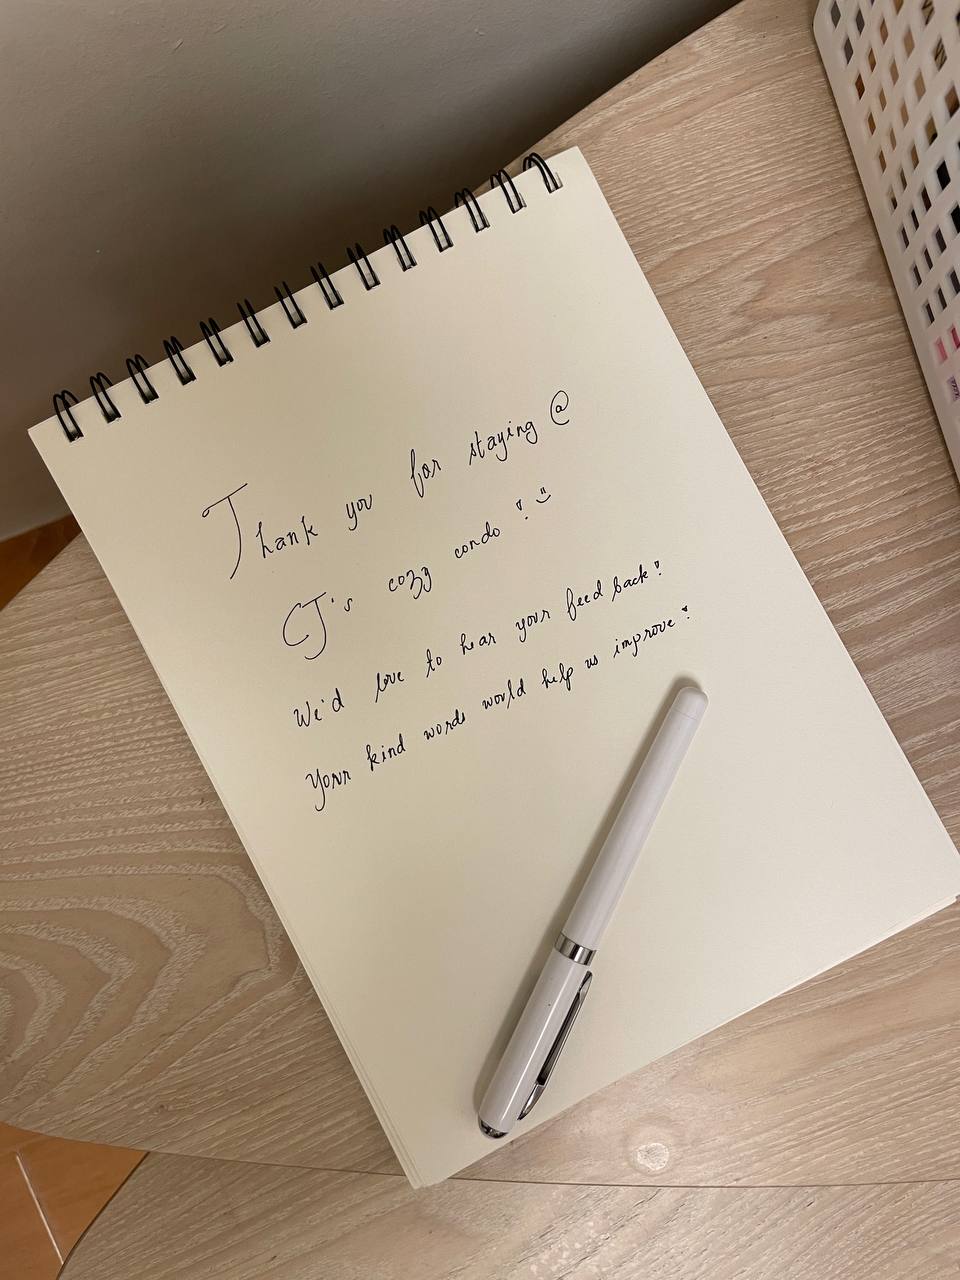 Thank you for staying @
CJ's cozy condo! :)
We'd love to hear your feed back!
Your kind words would help us improve!